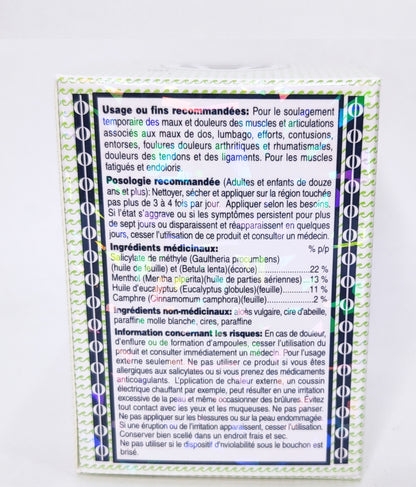 Usage ou fins recommandées: Pour le soulagement
temporaire des maux et douleurs des muscles et articulations
associés aux maux de dos, lumbago, efforts, contusions,
entorses, foulures douleurs arthritiques et rhumatismales,
douleurs des tendons et des ligaments. Pour les muscles
fatigués et endoloris.
Posologie recommandée (Adultes et enfants de douze
ans et plus): Nettoyer, sécher et appliquer sur la région touchée
pas plus de 3 à 4 fois par jour. Appliquer selon les besoins.
Si l'état s'aggrave ou si les symptômes persistent pour plus
de sept jours ou disparaissent et réapparaissent en quelques
jours, cesser l'utilisation de ce produit et consulter un médecin.
Ingrédients médicinaux: % p/p
Salicylate de méthyle (Gaultheria procumbens)
(huile de feuille) et (Betula lenta)(écorce)....................22 %
Menthol (Mentha piperita)(huile de parties aériennes)...13 %
Huile d'eucalyptus (Eucalyptus globules)(feuille)..........11 %
Camphre (Cinnamomum camphora)(feuille)...................2 %
Ingrédients non-médicinaux: aloès vulgaire, cire d'abeille,
paraffine molle blanche, cires, paraffine
Information concernant les risques: En cas de douleur,
d'enflure ou de formation d'ampoules, cesser l'utilisation du
produit et consulter immédiatement un médecin. Pour l'usage
externe seulement. Ne pas utiliser ce produit si vous êtes
allergiques aux salicylates ou si vous prenez des médicaments
anticoagulants. L'pplication de chaleur externe, un coussin
électrique chauffant par exemple, peut résulter en une irritation
excessive de la peau et même occasionner des brûlures. Évitez
tout contact avec les yeux et les muqueuses. Ne pas panser.
Ne pas appliquer sur les blessures ou sur la peau endommagée.
Si une éruption ou de l'irritation apparaissent, cesser l'utilisation.
Conserver bien scellé dans un endroit frais et sec.
Ne pas utiliser si le dispositif d'nviolabilité sous le bouchon est
brisé.